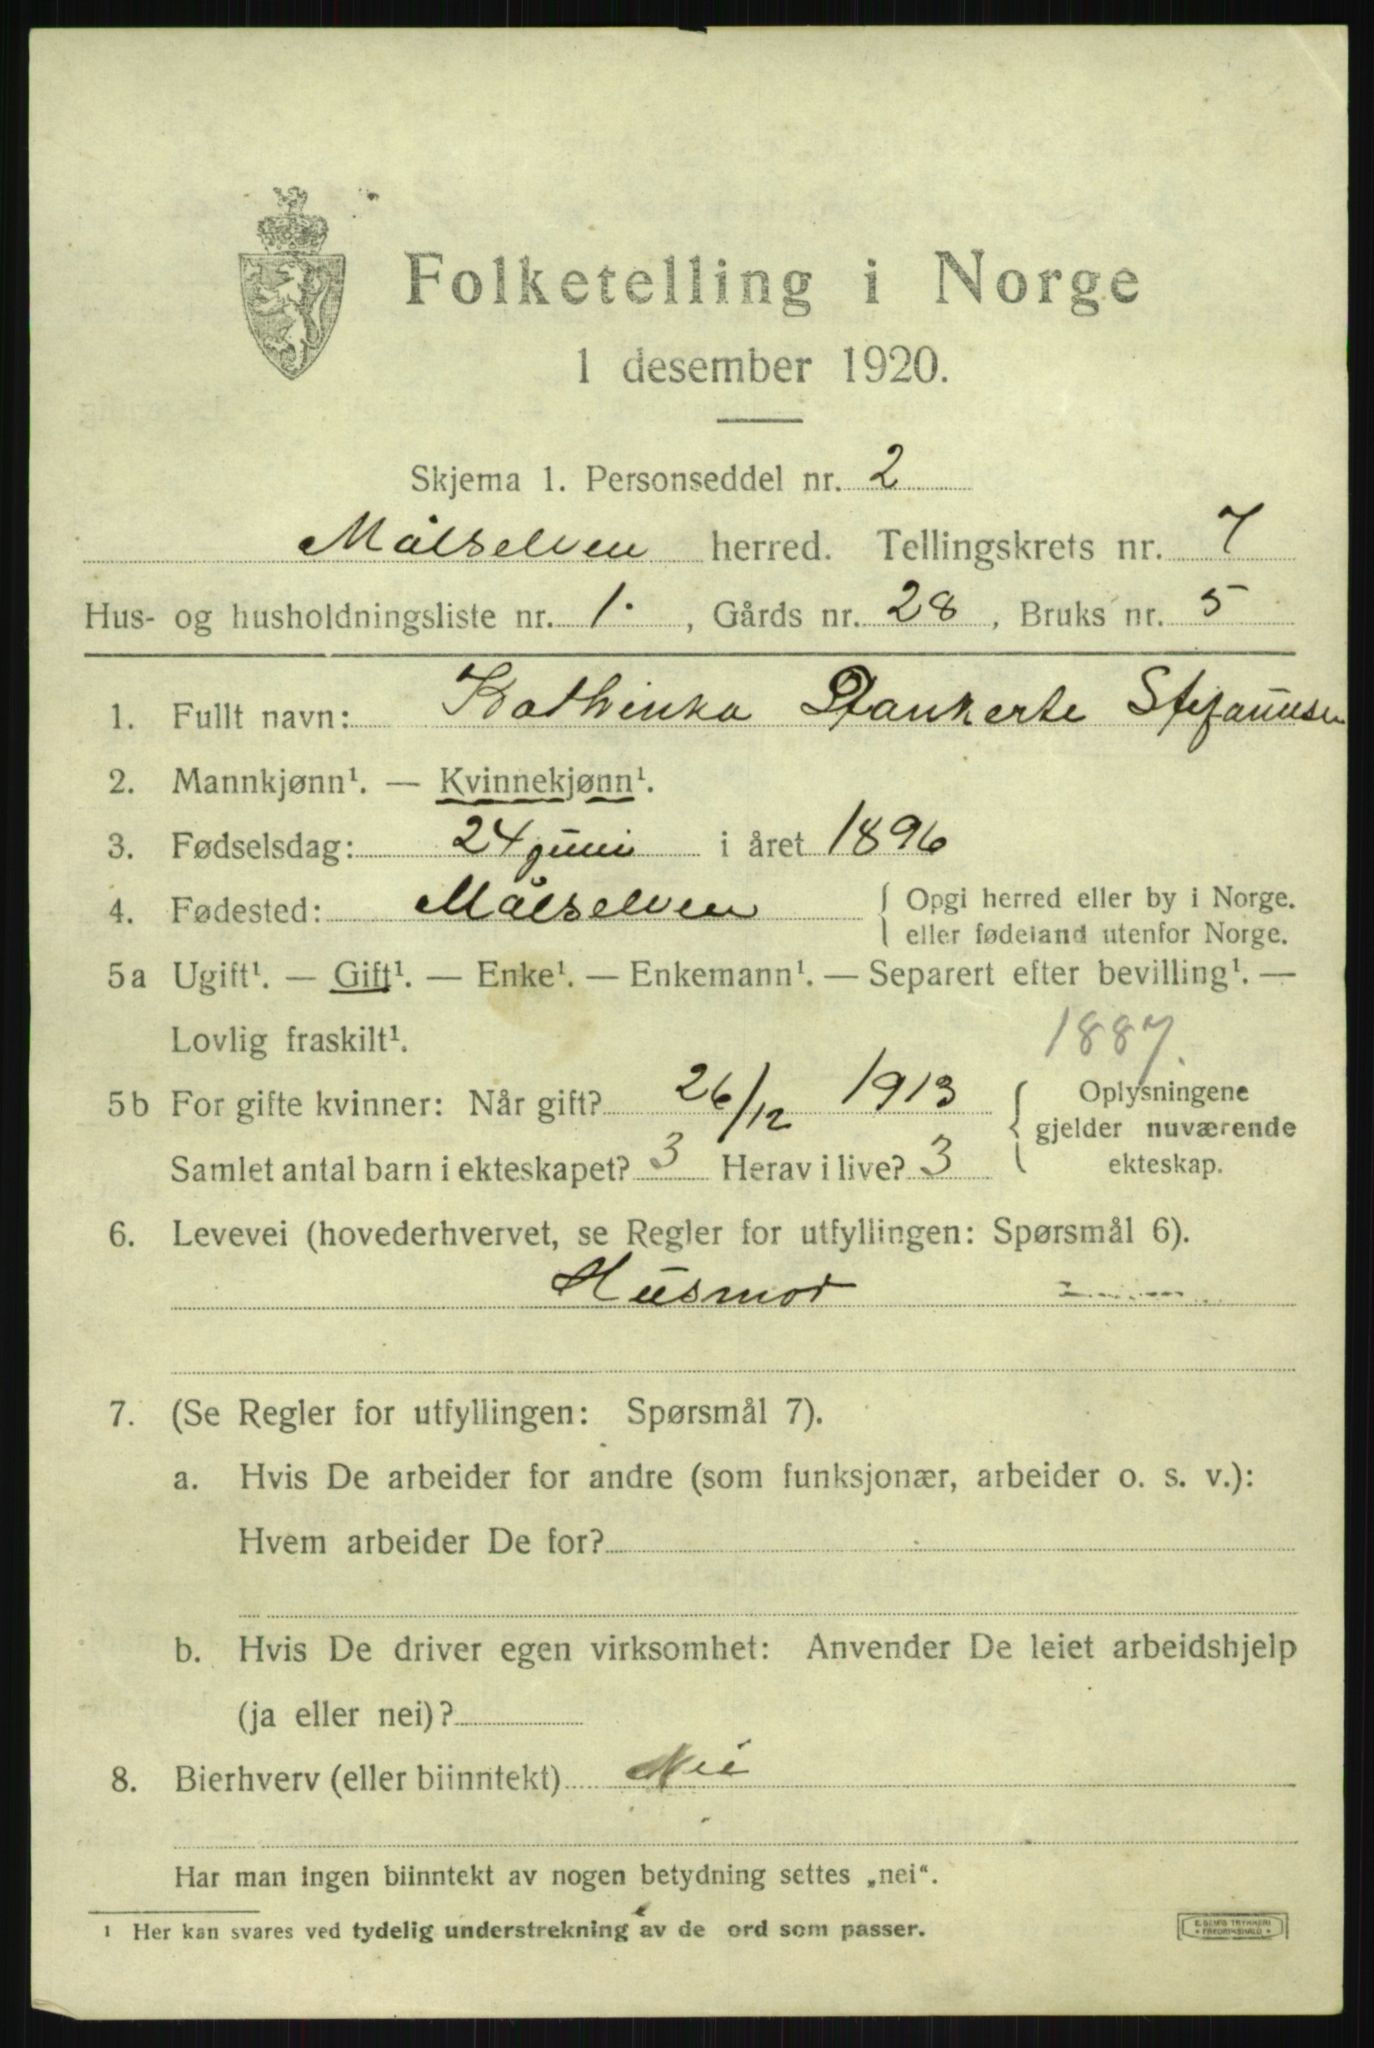 Folketelling i Norge
1 desember 1920.
Skjema 1. Personseddel nr. 2
Målselven herred. Tellingskrets nr. 7
Hus- og husholdningsliste nr. 1. , Gårds nr. 28 , Bruks nr. 5
1. Fullt navn: Kathinka Stefanussen
2. Mannkjønn¹. — Kvinnekjønn¹.
3. Fødselsdag: 24 juni i året 1896
4. Fødested: Målselven { Opgi herred eller by i Norge.
eller fødeland utenfor Norge.
5a Ugift¹. — Gift¹. — Enke¹. — Enkemann¹. — Separert efter bevilling¹. —
Lovlig fraskilt¹.
1887
5b For gifte kvinner: Når gift? 26/12 1913 { Oplysningene
gjelder nuværende
Samlet antal barn i ekteskapet? 3 Herav i live? 3 ekteskap.
6. Levevei (hovederhvervet, se Regler for utfyllingen: Spørsmål 6).
Husmor
7. (Se Regler for utfyllingen: Spørsmål 7).
a. Hvis De arbeider for andre (som funksjonær, arbeider o. s. v.):
Hvem arbeider De for?
b. Hvis De driver egen virksomhet: Anvender De leiet arbeidshjelp
(ja eller nei)?
8. Bierhverv (eller biinntekt) Nei
Har man ingen biinntekt av nogen betydning settes „nei“.
¹ Her kan svares ved tydelig understrekning av de ord som passer.